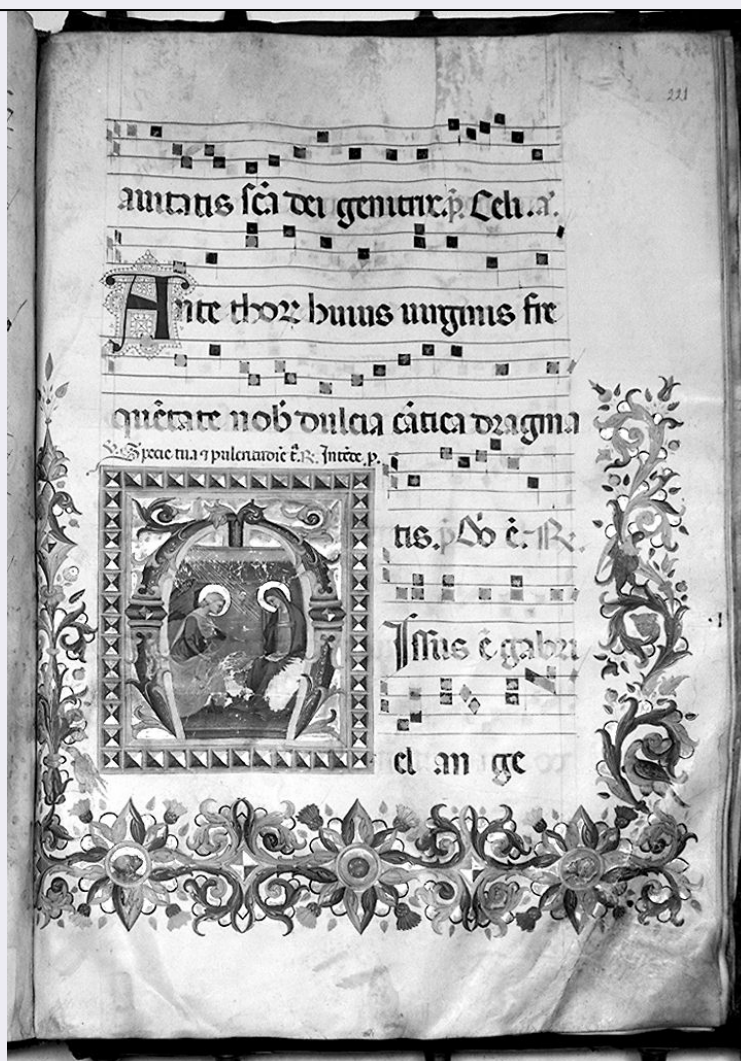 221
auitatis sca dei genitrix. p. Celi. a.
Ante thor huius uirginis fre
quetate nob dulcia catica dragma
V. Specie tua 7 pulcritudie t. R. Intede. p.
tis. p.
issus e gabri
el ange